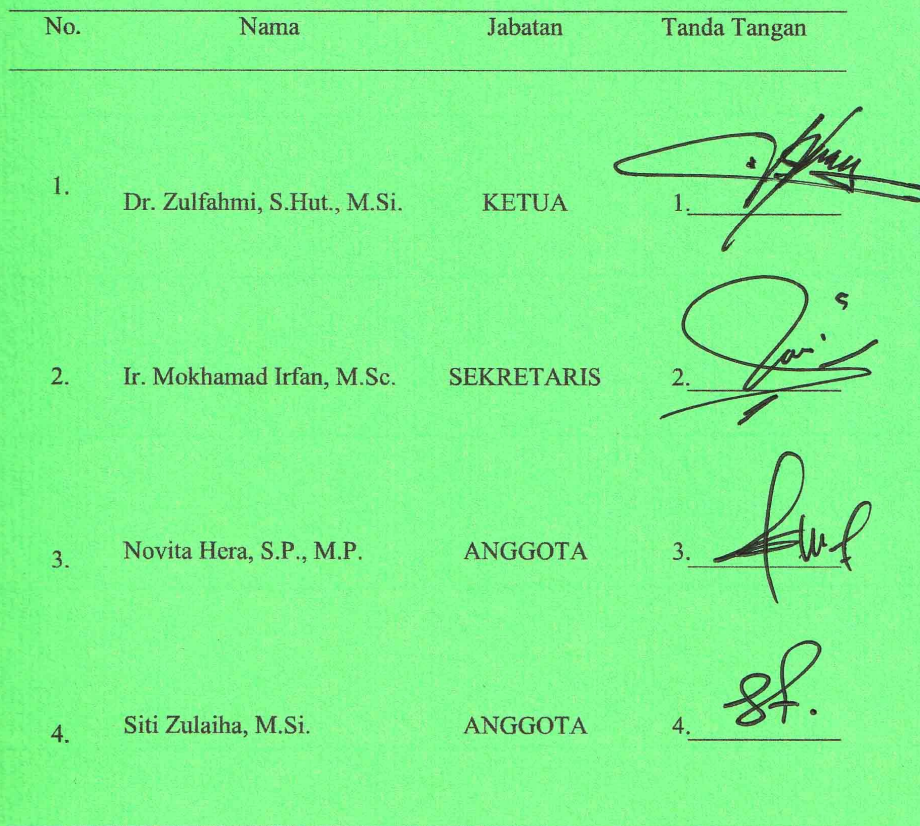 No. Nama Jabatan Tanda Tangan
1. Dr. Zulfahmi, S.Hut., M.Si. KETUA 1.
2. Ir. Mokhamad Irfan, M.Sc. SEKRETARIS 2.
3. Novita Hera, S.P., M.P. ANGGOTA 3.
4. Siti Zulaiha, M.Si. ANGGOTA 4.